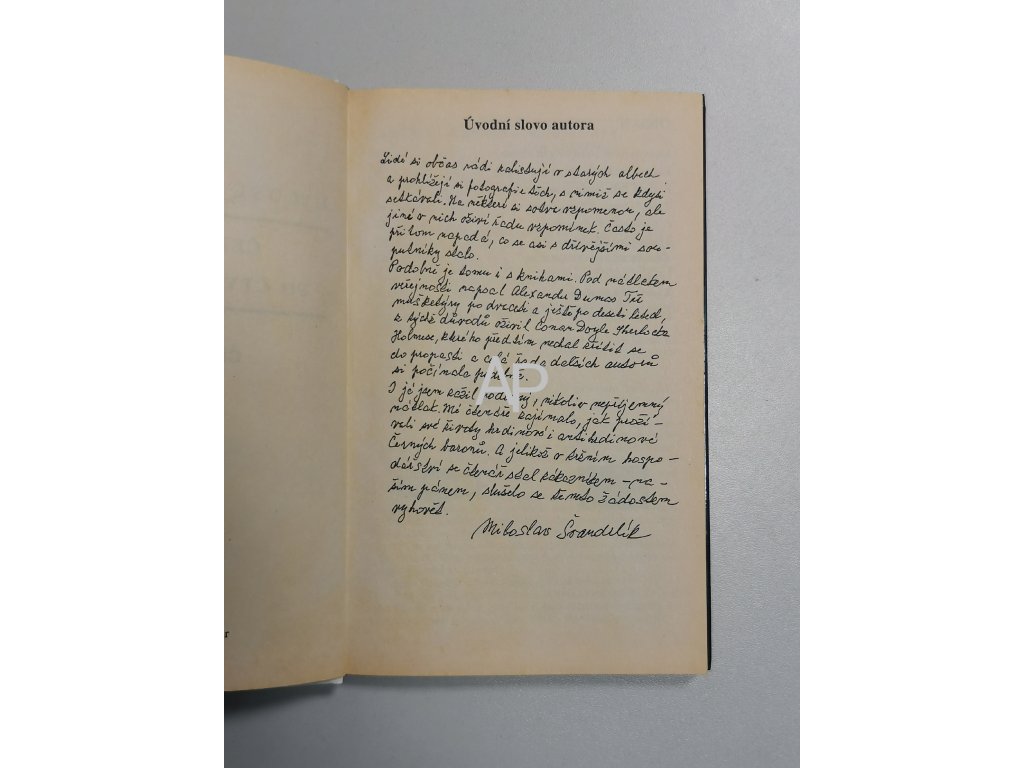 Úvodní slovo autora
Lidé si občas rádi zalistují v starých albech
a prohlížejí si fotografie těch, s nimiž se kdysi
setkávali. Na některé si sotva vzpomenou, ale
jiné v nich oživí řadu vzpomínek. Často je
při tom napadá, co se asi s dřívějšími sou-
putníky stalo.
Podobně je tomu i s knihami. Pod nátlakem
veřejnosti napsal Alexandre Dumas Tři
mušketýry po dvaceti a ještě po deseti letech,
z týchž důvodů oživil Conan Doyle Sherlocka
Holmese, kterého předtím nechal zřítit se
do propasti a celá řada dalších autorů
si počínala podobně.
I já jsem zažil podobný, nikoliv nepříjemný
nátlak. Mé čtenáře zajímalo, jak proží-
vali své životy hrdinové i antihrdinové
Černých baronů. A jelikož v tržním hospo-
dářství se čtenář stal zákazníkem – na-
ším pánem, slušelo se těmto žádostem
vyhovět.
Miloslav Švandrlík
AP
r